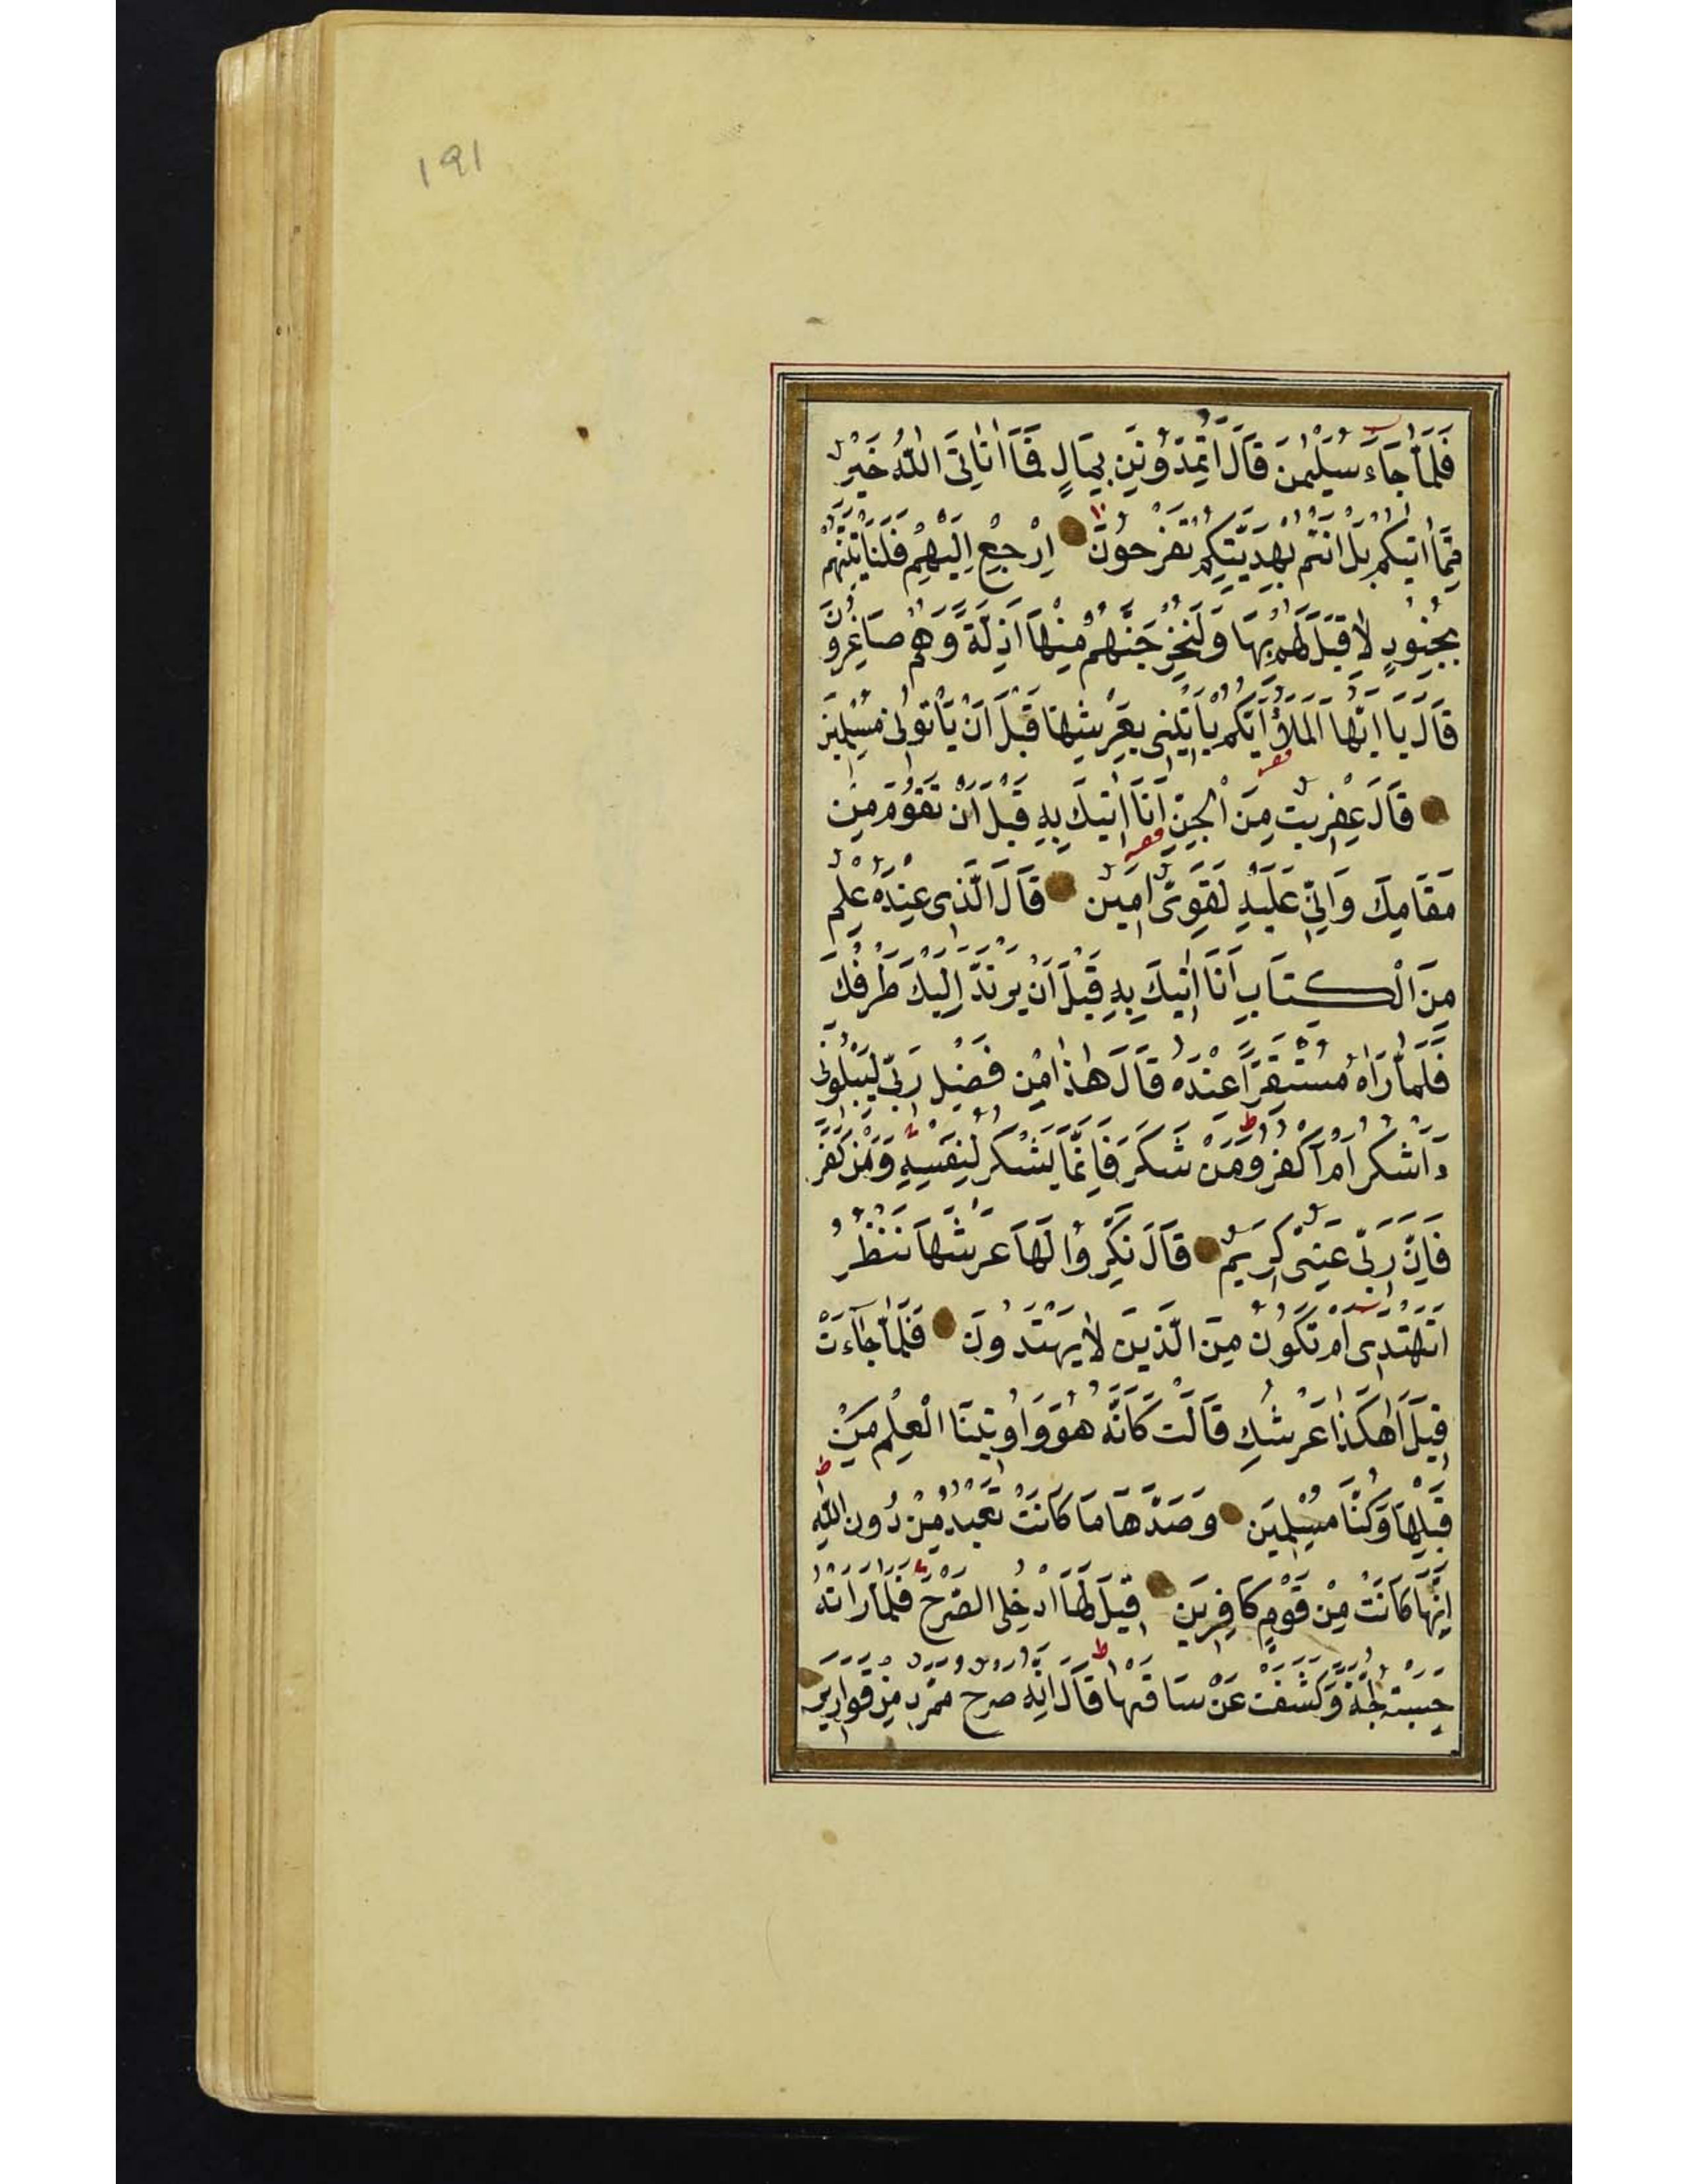 ١٩١
فَلَمَّا جَاءَ سُلَيْمٰنَ قَالَ اَتُمِدُّونَنِ بِمَالٍ فَمَا اٰتَانِيَ اللّٰهُ خَيْرٌ
مِمَّا اٰتٰيكُمْ بَلْ اَنْتُمْ بِهَدِيَّتِكُمْ تَفْرَحُونَ اِرْجِعْ اِلَيْهِمْ فَلَنَأْتِيَنَّهُمْ
بِجُنُودٍ لَا قِبَلَ لَهُمْ بِهَا وَلَنُخْرِجَنَّهُمْ مِنْهَا اَذِلَّةً وَهُمْ صَاغِرُونَ
قَالَ يَا اَيُّهَا الْمَلَؤُا اَيُّكُمْ يَأْتِينِى بِعَرْشِهَا قَبْلَ اَنْ يَأْتُونِى مُسْلِمِينَ
قَالَ عِفْرِيتٌ مِنَ الْجِنِّ اَنَا اٰتِيكَ بِهِ قَبْلَ اَنْ تَقُومَ مِنْ
مَقَامِكَ وَاِنِّى عَلَيْهِ لَقَوِىٌّ اَمِينٌ قَالَ الَّذِى عِنْدَهُ عِلْمٌ
مِنَ الْكِتَابِ اَنَا اٰتِيكَ بِهِ قَبْلَ اَنْ يَرْتَدَّ اِلَيْكَ طَرْفُكَ
فَلَمَّا رَاٰهُ مُسْتَقِرًّا عِنْدَهُ قَالَ هٰذَا مِنْ فَضْلِ رَبِّى لِيَبْلُوَنِى
ءَاَشْكُرُ اَمْ اَكْفُرُ وَمَنْ شَكَرَ فَاِنَّمَا يَشْكُرُ لِنَفْسِهِ وَمَنْ كَفَرَ
فَاِنَّ رَبِّى غَنِىٌّ كَرِيمٌ قَالَ نَكِّرُوا لَهَا عَرْشَهَا نَنْظُرْ
اَتَهْتَدِى اَمْ تَكُونُ مِنَ الَّذِينَ لَا يَهْتَدُونَ فَلَمَّا جَاءَتْ
قِيلَ اَهٰكَذَا عَرْشُكِ قَالَتْ كَاَنَّهُ هُوَ وَاُوتِينَا الْعِلْمَ مِنْ
قَبْلِهَا وَكُنَّا مُسْلِمِينَ وَصَدَّهَا مَا كَانَتْ تَعْبُدُ مِنْ دُونِ اللّٰهِ
اِنَّهَا كَانَتْ مِنْ قَوْمٍ كَافِرِينَ قِيلَ لَهَا ادْخُلِى الصَّرْحَ فَلَمَّا رَاَتْهُ
حَسِبَتْهُ لُجَّةً وَكَشَفَتْ عَنْ سَاقَيْهَا قَالَ اِنَّهُ صَرْحٌ مُمَرَّدٌ مِنْ قَوَارِيرَ